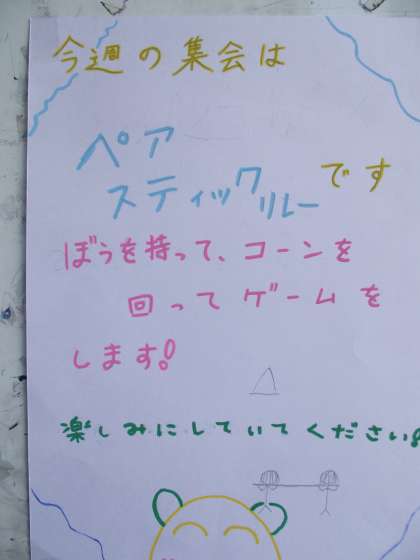 今週の集会は
ペア
スティックリレーです
ぼうを持って、コーンを
回ってゲームを
します!
楽しみにしていてください!